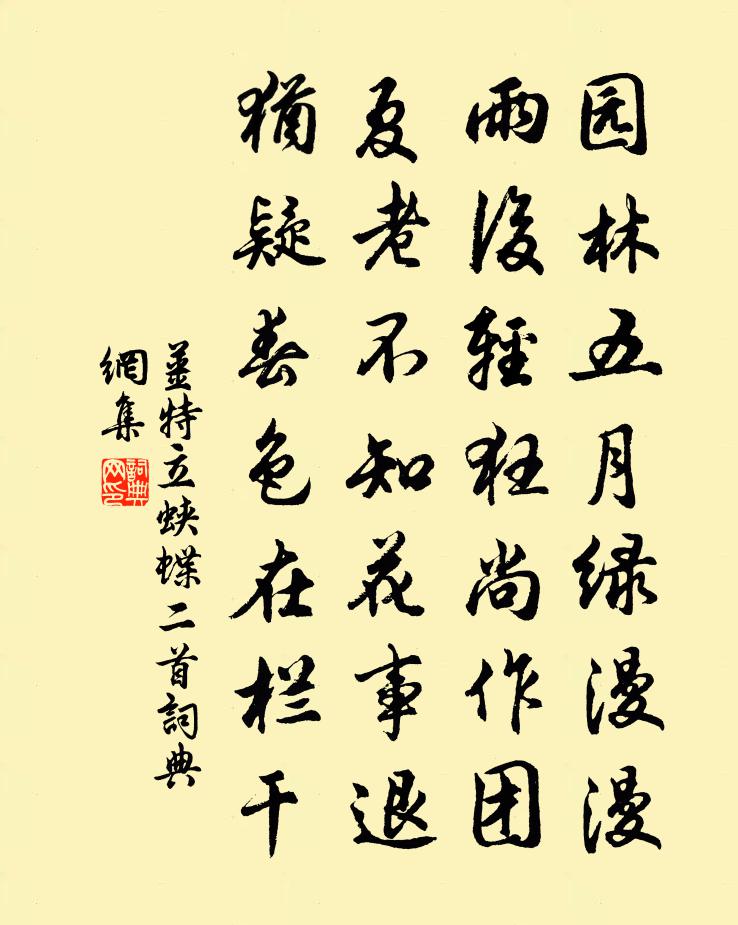 园林五月绿漫漫
雨後輕狂尚作团
夏老不知花事退
猶疑春色在栏干
姜特立蛱蝶二首詞典
網集
詞典
网印